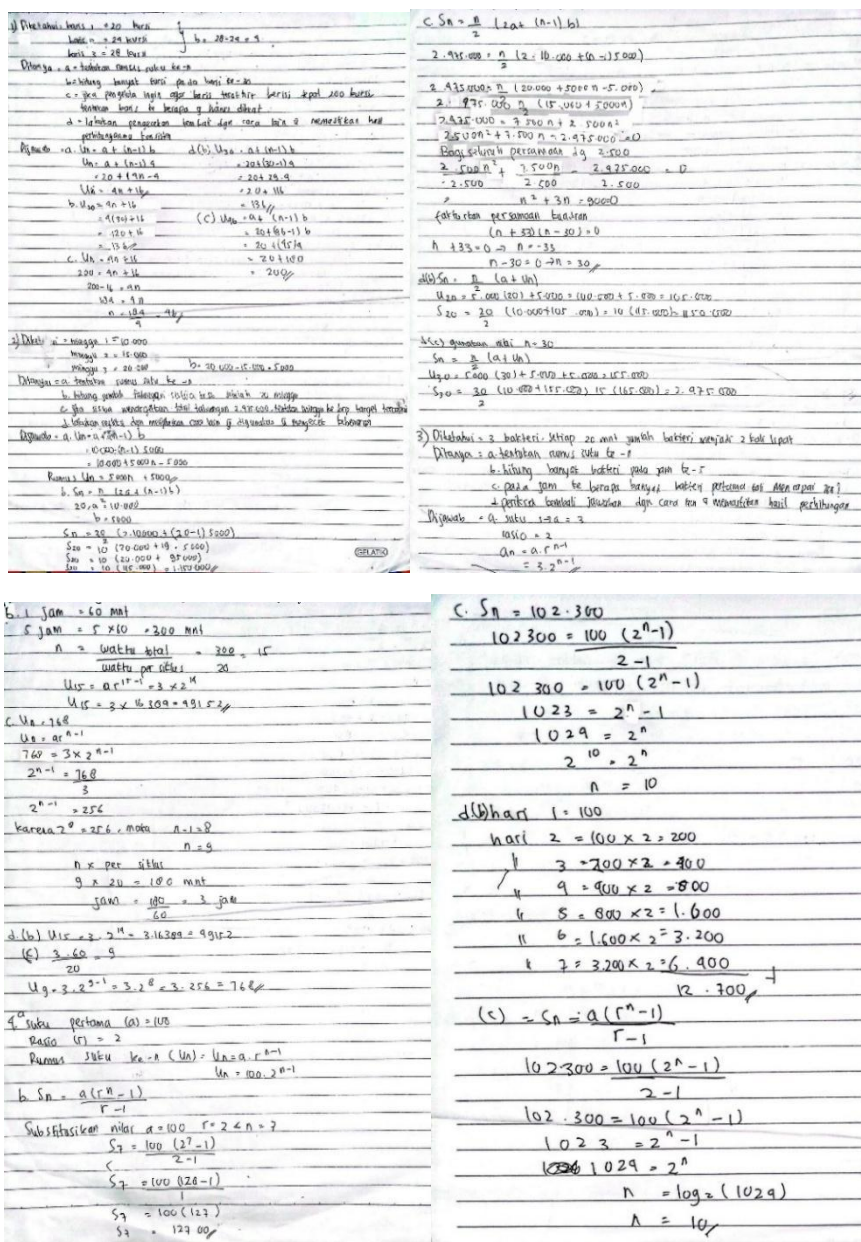 1) Diketahui: baris 1 = 20 kursi
baris n = 24 kursi
baris 3 = 28 kursi
b = 28-24 = 4
Ditanya = a = tentukan rumus suku ke-n
b = hitung banyak kursi pada baris ke-30
c = jika pengelola ingin agar baris terakhir berisi tepat 200 kursi
tentukan baris ke berapa yg harus dibuat
d = lakukan pengecekan kembali dgn cara lain u memastikan hasil
perhitunganmu
Dijawab = a. Un = a + (n-1) b
Un = a + (n-1) 4
= 20 + 4n - 4
Un = 4n + 16
b. U30 = 4n + 16
= 4(30) + 16
= 120 + 16
= 136
c. Un = 4n + 16
200 = 4n + 16
200 - 16 = 4n
184 = 4n
n = 184/4 = 46
d (b) U30 = a + (n-1) b
= 20 + (30-1) 4
= 20 + 29.4
= 20 + 116
= 136
(c) U46 = a + (n-1) b
= 20 + (46-1) b
= 20 + (45)4
= 20 + 180
= 200
2) Diket = minggu 1 = 10.000
minggu 2 = 15.000
minggu 3 = 20.000
b = 20.000 - 15.000 = 5000
Ditanya = a. tentukan rumus suku ke-n
b. hitung jumlah tabungan siswa setelah 20 minggu
c. jika siswa menargetkan total tabungan 2.975.000, minggu ke brp target tercapai
Dijawab = a. Un = a + (n-1) b
= 10.000 + (n-1) 5000
= 10.000 + 5000n - 5000
Rumus Un = 5000n + 5000
b. Sn = n/2 (2a + (n-1) b)
20, a = 10.000
b = 5000
Sn = 20/2 (2.10.000 + (20-1) 5000)
S20 = 10 (20.000 + 19 . 5000)
S20 = 10 (20.000 + 95000)
S20 = 10 (115.000) = 1.150.000
GELATIK
c. Sn = n/2 (2a + (n-1) b)
2.975.000 = n/2 (2 . 10.000 + (n-1) 5000)
2.975.000 = n/2 (20.000 + 5000n - 5.000)
2.975.000 n/2 (15.000 + 5000n)
2.975.000 = 7500n + 2.500n²
2.500n² + 7.500n - 2.975.000 = 0
Bagi seluruh persamaan dg 2.500
2.500n²/2.500 + 7.500n/2.500 - 2.975.000/2.500 = 0
n² + 3n - 900 = 0
faktorkan persamaan kuadrat
(n + 33) (n - 30) = 0
n + 33 = 0 → n = -33
n - 30 = 0 → n = 30
d(b) Sn = n/2 (a + Un)
U20 = 5.000 (20) + 5.000 = 100.000 + 5.000 = 105.000
S20 = 20/2 (10.000 + 105.000) = 10 (115.000) = 1.150.000
d (c) gunakan nilai n = 30
Sn = n/2 (a + Un)
U30 = 5000 (30) + 5.000 + 5.000 = 155.000
S30 = 30/2 (10.000 + 155.000) 15 (165.000) = 2.975.000
3) Diketahui = 3 bakteri. setiap 20 mnt jumlah bakteri menjadi 2 kali lipat
Ditanya = a. tentukan rumus suku ke-n
b. hitung banyak bakteri pada jam ke-5
c. pada jam ke berapa banyak bakteri pertama kali mencapai 768?
d periksa kembali jawaban dgn cara lain u memastikan hasil perhitungan
Dijawab = a. suku 1 → a = 3
rasio = 2
an = a.r^n-1
= 3.2^n-1
b. 1 jam = 60 mnt
5 jam = 5 x 60 = 300 mnt
n = waktu total/waktu per siklus = 300/20 = 15
U15 = ar^15-1 = 3 x 2^14
U15 = 3 x 16384 = 49152
c. Un = 768
Un = ar^n-1
768 = 3 x 2^n-1
2^n-1 = 768/3
2^n-1 = 256
karena 2^8 = 256, maka n-1 = 8
n = 9
n x per siklus
9 x 20 = 180 mnt
jam = 180/60 = 3 jam
d. (b) U15 = 3. 2^14 = 3.16384 = 49152
(c) 3.60/20 = 9
U9 = 3.2^9-1 = 3.2^8 = 3.256 = 768
4. a suku pertama (a) = 100
Rasio (r) = 2
Rumus suku ke-n (Un) = Un = a.r^n-1
Un = 100.2^n-1
b. Sn = a(r^n - 1)/r - 1
Substitusikan nilai a = 100 r = 2 & n = 7
S7 = 100 (2^7 - 1)/2-1
S7 = 100 (128-1)/1
S7 = 100 (127)
S7 = 12700
c. Sn = 102.300
102300 = 100 (2^n - 1)/2 - 1
102 300 = 100 (2^n - 1)
1023 = 2^n - 1
1024 = 2^n
2^10 = 2^n
n = 10
d.(b) hari 1 = 100
hari 2 = 100 x 2 = 200
" 3 = 200 x 2 = 400
" 4 = 400 x 2 = 800
" 5 = 800 x 2 = 1.600
" 6 = 1.600 x 2 = 3.200
" 7 = 3.200 x 2 = 6.400 +
12.700
(c) = Sn = a(r^n - 1)/r - 1
102300 = 100 (2^n - 1)/2 - 1
102.300 = 100 (2^n - 1)
1023 = 2^n - 1
1024 = 2^n
n = log2 (1024)
n = 10